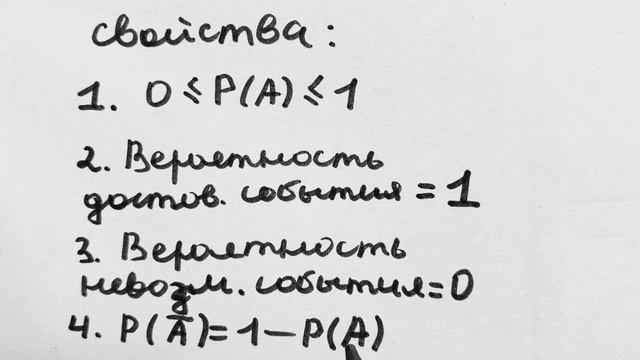 свойства:
1. 0 ≤ P(A) ≤ 1
2. Вероятность
достов. события = 1
3. Вероятность
невозм. события = 0
4. P(Ā) = 1 – P(A)